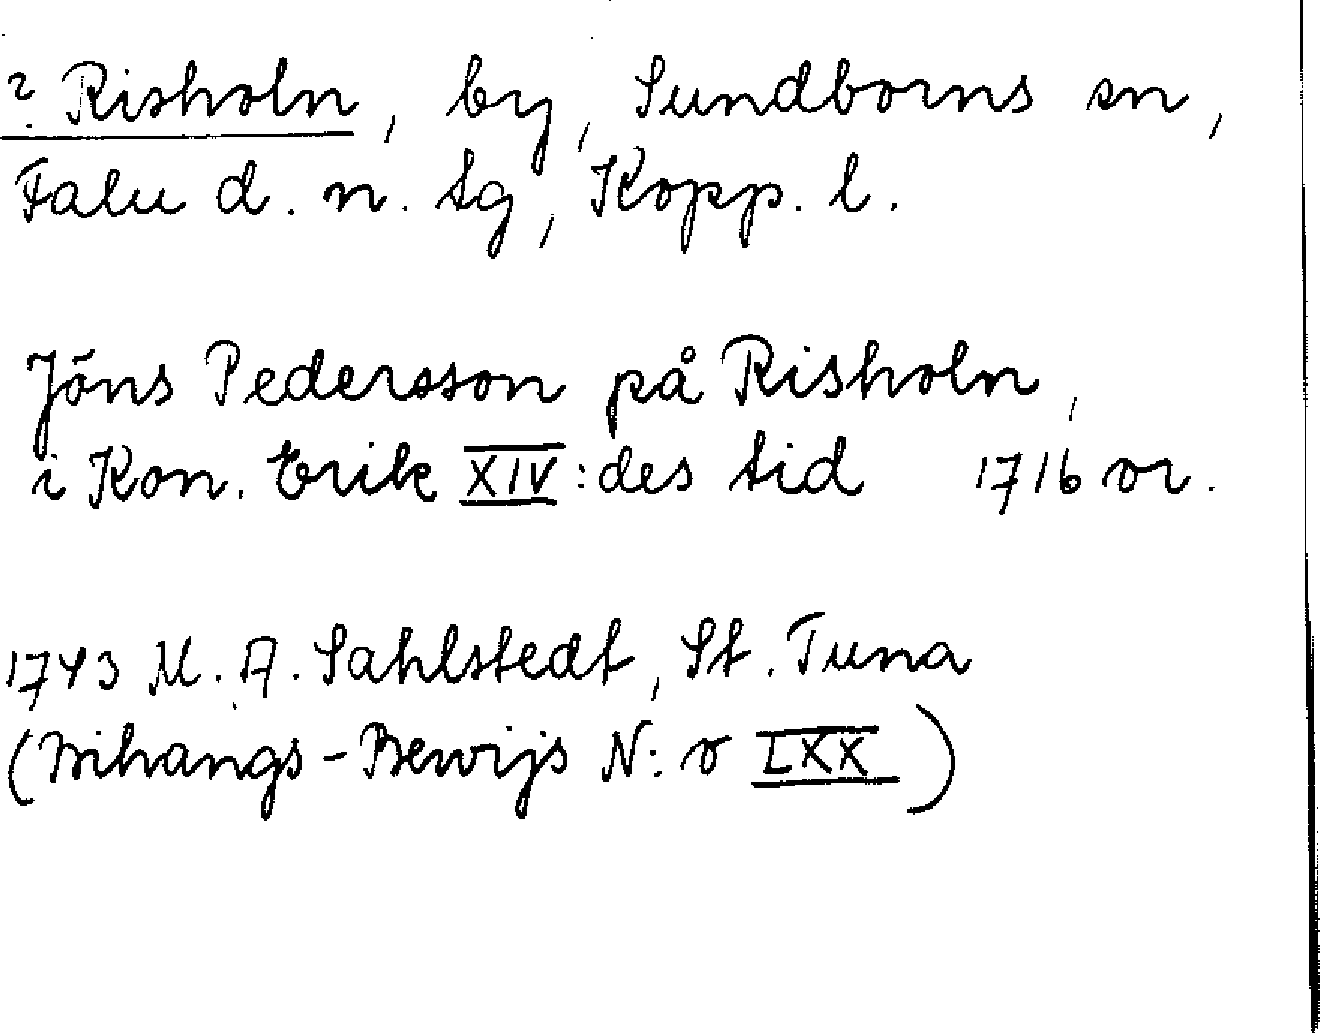 ? Risholn, by, Sundborns sn,
Falu d. n. tg, Kopp. l.
Jöns Pedersson på Risholn,
i Kon. Erik XIV:des tid 1716 or.
1743 M. A. Sahlstedt, St. Tuna
(Bihangs-Bewijs N:o LXX)